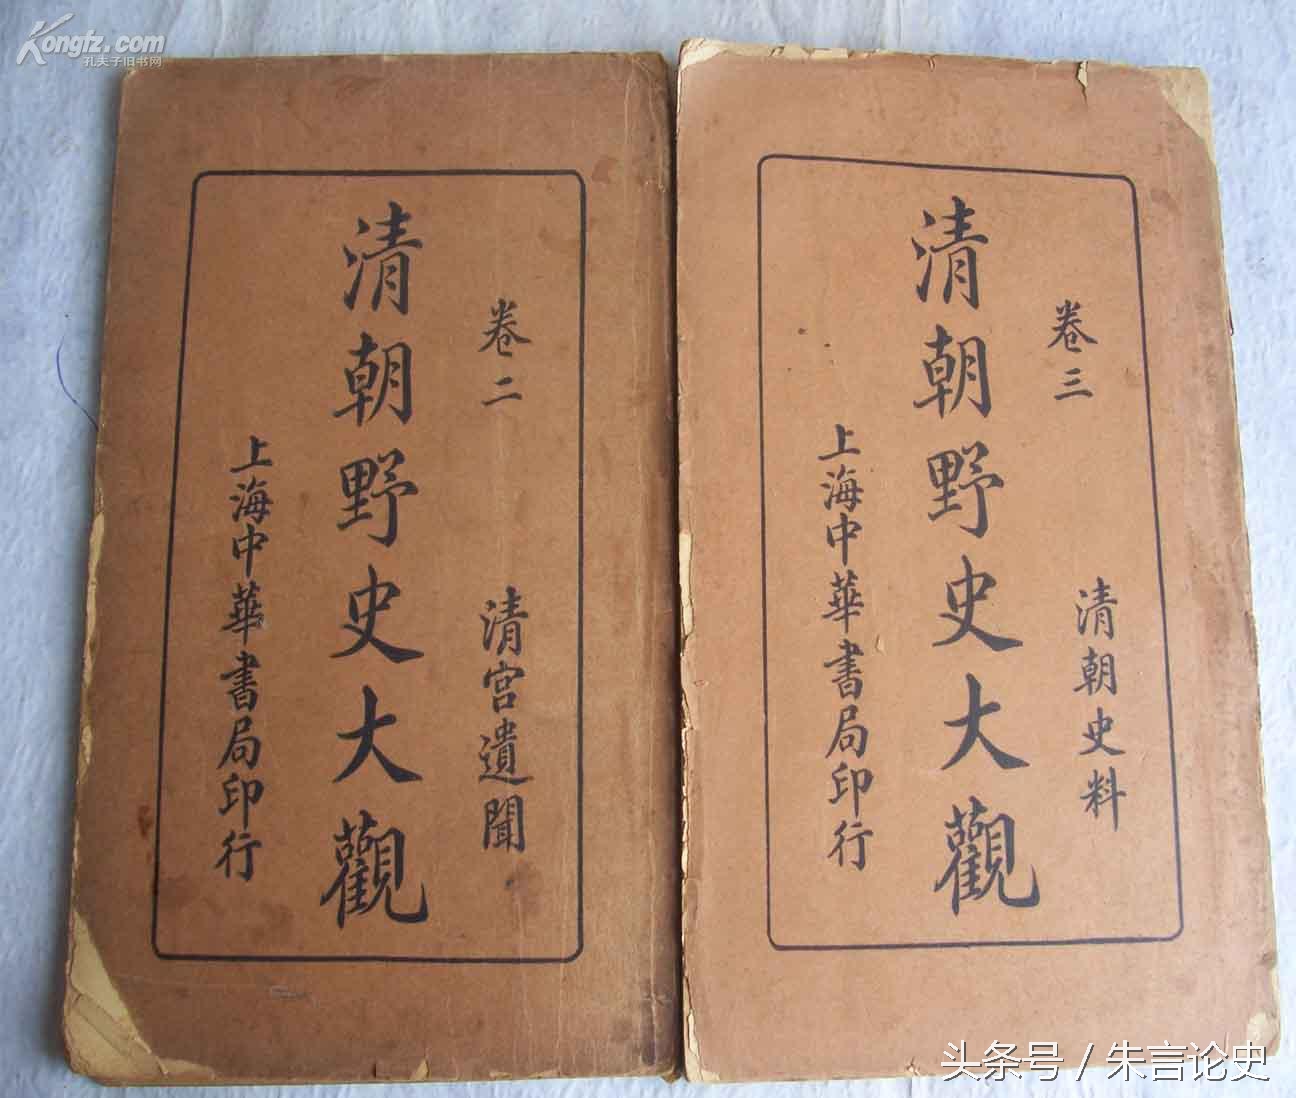 Kongfz.com
孔夫子旧书网
卷二 清宮遺聞
清朝野史大觀
上海中華書局印行
卷三 清朝史料
清朝野史大觀
上海中華書局印行
头条号 / 朱言论史